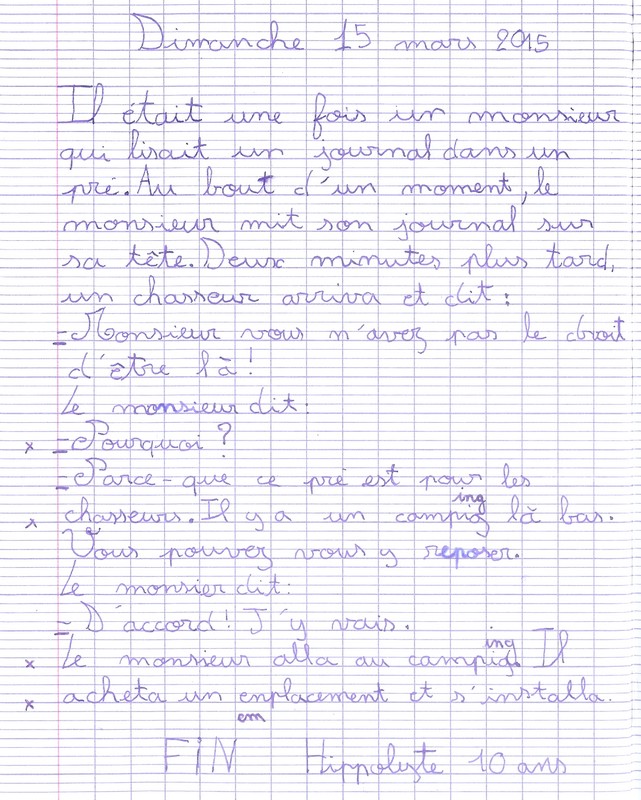 Dimanche 15 mars 2015
Il était une fois un monsieur
qui lisait un journal dans un
pré. Au bout d'un moment, le
monsieur mit son journal sur
sa tête. Deux minutes plus tard,
un chasseur arriva et dit :
- Monsieur vous n'avez pas le droit
d'être là !
Le monsieur dit :
x - Pourquoi ?
- Parce-que ce pré est pour les
ing
x chasseurs. Il y a un campig là bas.
Vous pouvez vous y reposer.
Le monsier dit :
- D'accord ! J'y vais.
ing
x Le monsieur alla au campig. Il
x acheta un enplacement et s'installa.
em
FiN Hippolyte 10 ans